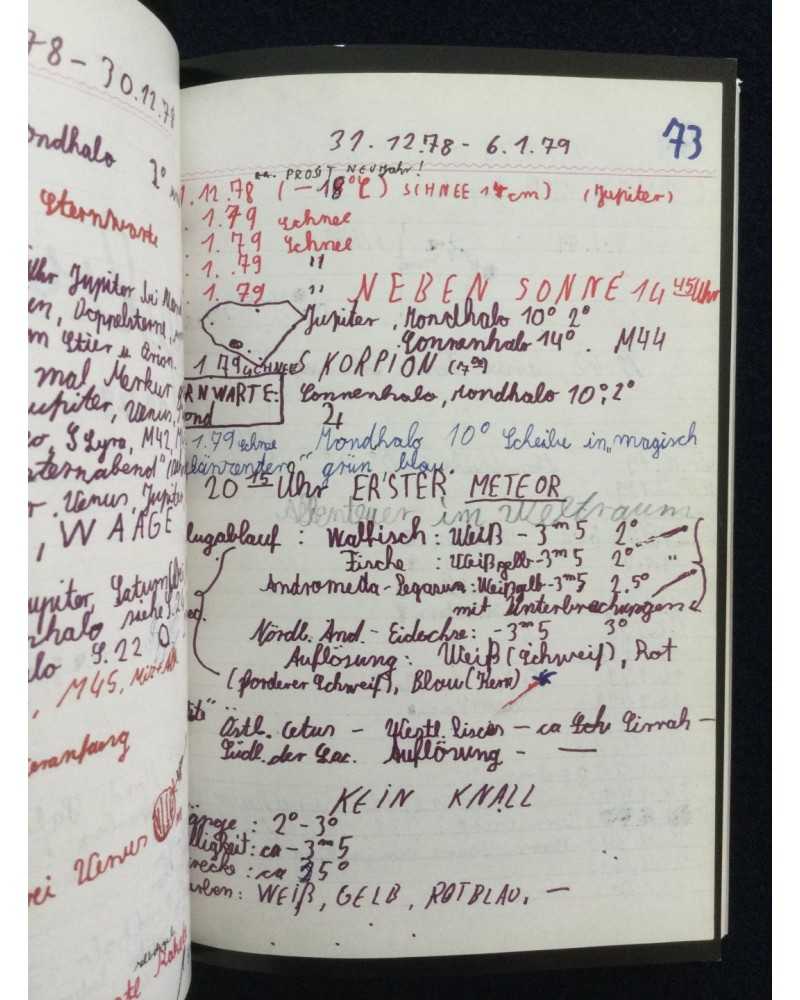 78 - 30.12.78
Mondhalo 2°
Sternwarte
Uhr Jupiter bei Mond
en, Doppelsterne,
m Stier u. Orion.
mal Merkur
Jupiter, Venus,
M42,
sternabend"
r. Venus, Jupiter
, WAAGE
Jupiter, Saturn
nhalo siehe S.2
lo S.22
, M45,
eranfang
ei Venus
73
31.12.78 - 6.1.79
PROSIT NEUJahr!
1.12.78 (-18°C) SCHNEE 14cm) (Jupiter)
1.79 Schnee
1.79 Schnee
1.79 "
1.79 " NEBEN SONNE 14 45 Uhr
Jupiter, Mondhalo 10° 2°
Sonnenhalo 14°. M44
1.79 SCHNEE SKORPION
RNWARTE: Sonnenhalo, Mondhalo 10°, 2°
ond ♃
1.79 Schnee Mondhalo 10° Scheibe in „magisch
glänzenden" grün blau.
20 15 Uhr ERSTER METEOR
Abenteuer im Weltraum
lugablauf: Walfisch: Weiß - 3m5 2°
Fische: Weißgelb - 3m5 2° "
Andromeda-Pegasus: Weißgelb - 3m5 2.5°
mit Unterbrechungen
Nördl. And. - Eidechse: - 3m5 3°
Auflösung: Weiß (Schweif), Rot
(forderer Schweif), Blau (Kern)
Östl. Cetus - Westl. Pisces - ca Sch Sirrah -
Südl. der Lac. Auflösung -
KEIN KNALL
änge: 2° - 3°
lligkeit: ca - 3m5
recke: ca 25°
arben: WEIß, GELB, ROTBLAU. -